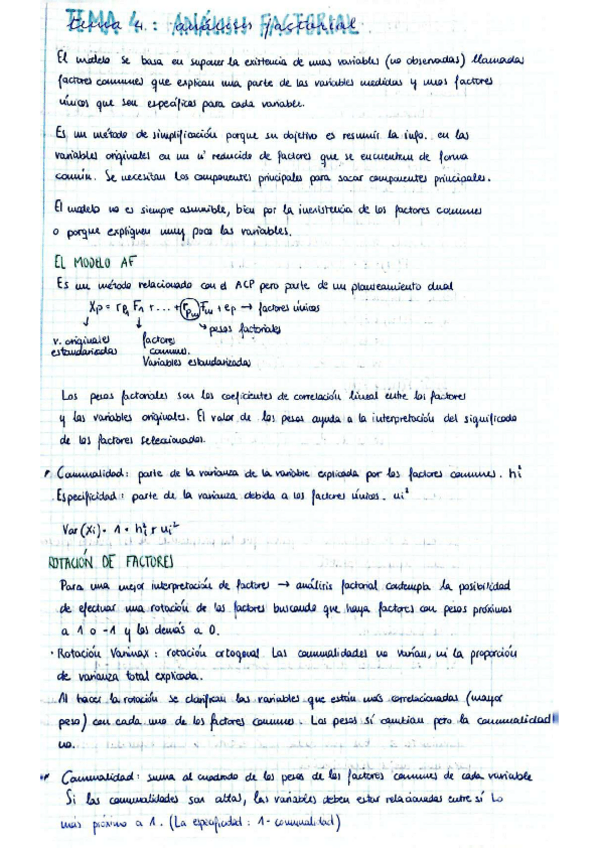 TEMA 4: ANÁLISIS FACTORIAL
tema 4: análisis factorial
El modelo se basa en suponer la existencia de unas variables (no observadas) llamadas
factores comunes que explican una parte de las variables medidas y unos factores
únicos que son específicos para cada variable.
Es un método de simplificación porque su objetivo es resumir la info. en las
variables originales en un nº reducido de factores que se encuentran de forma
común. Se necesitan los componentes principales para sacar componentes principales.
El modelo no es siempre asumible, bien por la inexistencia de los factores comunes
o porque expliquen muy poco las variables.
EL MODELO AF
Es un método relacionado con el ACP pero parte de un planteamiento dual
Xp = rp1 F1 + ... + rpm Fm + ep → factores únicos
pesos factoriales
v. originales factores
estandarizadas comunes.
Variables estandarizadas
Los pesos factoriales son los coeficientes de correlación lineal entre los factores
y las variables originales. El valor de los pesos ayuda a la interpretación del significado
de los factores seleccionados.
Comunalidad: parte de la varianza de la variable explicada por los factores comunes. hi²
Especificidad: parte de la varianza debida a los factores únicos. ui²
Var (Xi) = 1 = hi² + ui²
ROTACIÓN DE FACTORES
Para una mejor interpretación de factores → análisis factorial contempla la posibilidad
de efectuar una rotación de los factores buscando que haya factores con pesos próximos
a 1 o -1 y los demás a 0.
· Rotación Varimax: rotación ortogonal. Las comunalidades no varían, ni la proporción
de varianza total explicada.
Al hacer la rotación se clarifican las variables que están más correlacionadas (mayor
peso) con cada uno de los factores comunes. Los pesos sí cambian pero la comunalidad
no.
Comunalidad: suma al cuadrado de los pesos de los factores comunes de cada variable
Si las comunalidades son altas, las variables deben estar relacionadas entre sí Lo
más próximo a 1. (La especificidad: 1 - comunalidad)